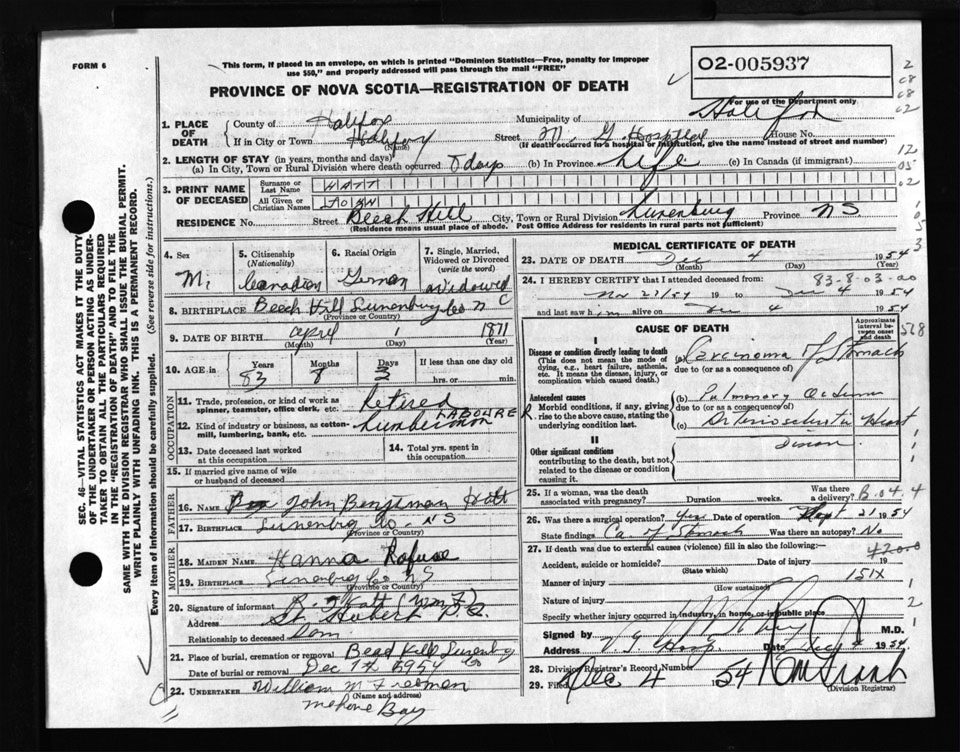 FORM 6
This form, if placed in an envelope, on which is printed "Dominion Statistics—Free, penalty for improper
use $50," and properly addressed will pass through the mail "FREE"
02-005937
For use of the Department only
PROVINCE OF NOVA SCOTIA—REGISTRATION OF DEATH
1. PLACE OF DEATH County of Halifax Municipality of Halifax
If in City or Town Halifax Street V. G. Hospital House No.
(Name) (If death occurred in a hospital or institution, give the name instead of street and number)
2. LENGTH OF STAY (in years, months and days)
(a) In City, Town or Rural Division where death occurred days (b) In Province Life (c) In Canada (if immigrant)
3. PRINT NAME OF DECEASED
Surname or Last Name HATT
All Given or Christian Names JOHN
RESIDENCE No. Street Beech Hill City, Town or Rural Division Lunenburg Province NS
(Residence means usual place of abode. Post Office Address for residents in rural parts not sufficient)
4. Sex M.
5. Citizenship (Nationality) Canadian
6. Racial Origin German
7. Single, Married, Widowed or Divorced (write the word) Widowed
8. BIRTHPLACE Beech Hill Lunenburg Co
(Province or Country)
9. DATE OF BIRTH April 1 1871
(Month) (Day) (Year)
10. AGE in Years Months Days If less than one day old
83 8 3 hrs. or min.
OCCUPATION
11. Trade, profession, or kind of work as spinner, teamster, office clerk, etc. Retired
LABOURE
12. Kind of industry or business, as cotton-mill, lumbering, bank, etc. Lumberman
13. Date deceased last worked at this occupation
14. Total yrs. spent in this occupation
15. If married give name of wife or husband of deceased
FATHER
16. Name John Benjaman Hatt
17. Birthplace Lunenbrg Co. NS
(Province or Country)
MOTHER
18. MAIDEN NAME Hanna Rafuse
19. BIRTHPLACE Lunenbrg Co NS
(Province or Country)
20. Signature of informant Hatt
Address St. Hubert P.Q.
Relationship to deceased Son
21. Place of burial, cremation or removal Lunenbrg Co
Date of burial or removal Dec 1954
22. UNDERTAKER William M Freeman
(Name and address)
Mahone Bay
MEDICAL CERTIFICATE OF DEATH
23. DATE OF DEATH Dec 4 1954
(Month) (Day) (Year)
24. I HEREBY CERTIFY that I attended deceased from 83-8-03-00
Nov 19 to Dec 4 1954
and last saw h im alive on Dec 4 1954
CAUSE OF DEATH
Approximate interval between onset and death
568
I
Disease or condition directly leading to death
(This does not mean the mode of dying, e.g., heart failure, asthenia. It means the disease, injury, or complication which caused death.)
(a) Carcinoma of Stomach
due to (or as a consequence of)
Antecedent causes
Morbid conditions, if any, giving rise to the above cause, stating the underlying condition last.
(b) Pulmonary Oedema
due to (or as a consequence of)
(c) Arteriosclerotic Heart
II
Other significant conditions
contributing to the death, but not related to the disease or condition causing it.
25. If a woman, was the death associated with pregnancy? Duration weeks. Was there a delivery? B.04.4
26. Was there a surgical operation? Yes Date of operation 21 1954
State findings Ca. of Stomach Was there an autopsy? No
27. If death due to external causes (violence) fill in also the following:—
Accident, suicide or homicide? Date of injury 19
(State which)
Manner of injury 151X
(How sustained)
Nature of injury
Specify whether injury occurred in industry, in home, or in public place
Signed by M.D.
Address V. G. Hosp. Date Dec 1954
28. Division Registrar's Record Number
29. Filed Dec 4 1954
(Division Registrar)
SEC. 46—VITAL STATISTICS ACT MAKES IT THE DUTY
OF THE UNDERTAKER OR PERSON ACTING AS UNDER-
TAKER TO OBTAIN ALL THE PARTICULARS REQUIRED
IN THE "REGISTRATION OF DEATH" AND TO FILE THE
SAME WITH THE DIVISION REGISTRAR WHO SHALL ISSUE THE BURIAL PERMIT.
WRITE PLAINLY WITH UNFADING INK. THIS IS A PERMANENT RECORD.
Every item of information should be carefully supplied. (See reverse side for instructions.)